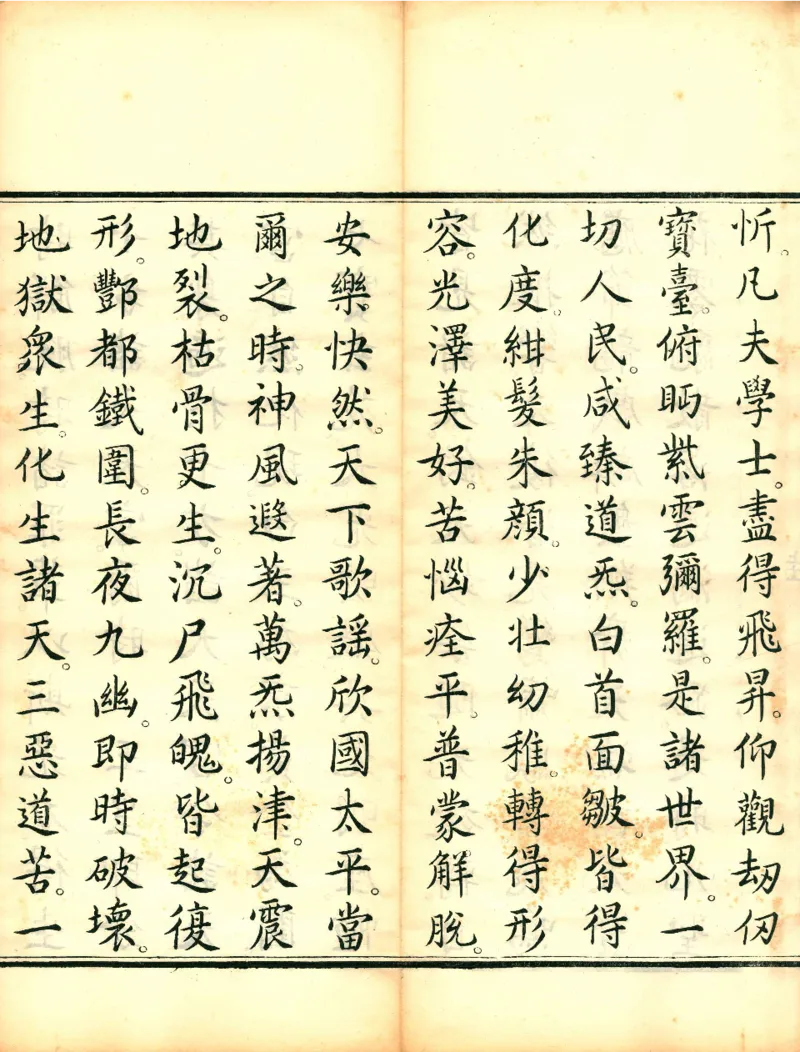 忻。凡夫學士。盡得飛昇。仰觀劫仞
寶臺。俯眄紫雲彌羅。是諸世界。一
切人民。咸臻道炁。白首面皺。皆得
化度。紺髮朱顏。少壯幼稚。轉得形
容。光澤美好。苦惱痊平。普蒙解脫。
安樂。快然。天下歌謡。欣國太平。當
爾之時。神風遐著。萬炁揚津。天震
地裂。枯骨更生。沉尸飛魄。皆起復
形。酆都鐵圍。長夜九幽。即時破壞。
地獄衆生。化生諸天。三惡道苦。一